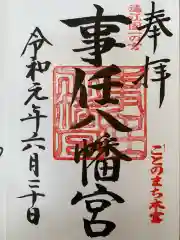 奉拝
遠江国一の宮
事任八幡宮
ことのまち本宮
令和元年六月三十日